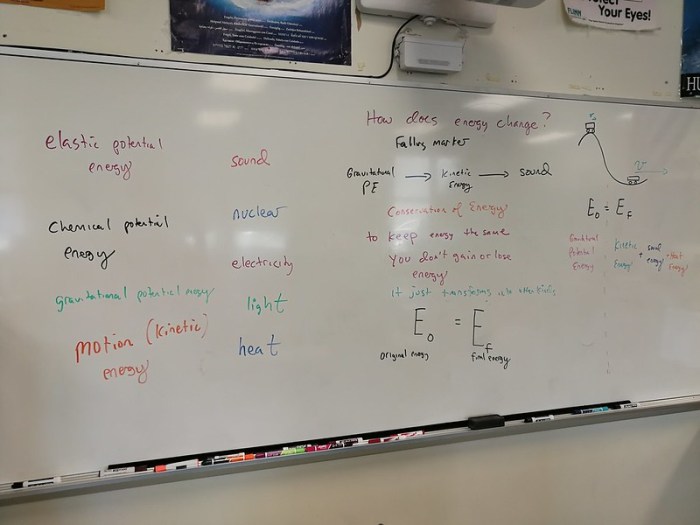 Your Eyes!
elastic potential
energy
sound
chemical potential
energy
nuclear
electricity
gravitational potential energy
light
motion (kinetic)
energy
heat
How does energy change?
Falling marker
Gravitational
PE → kinetic
energy → sound
Conservation of Energy
to keep energy the same
You don't gain or lose
energy
It just transforms into other kinds
E₀ = E_f
original energy
final energy
v
E₀ = E_f
Gravitational
Potential
Energy
kinetic
Energy
+ sound
energy
+ heat
energy